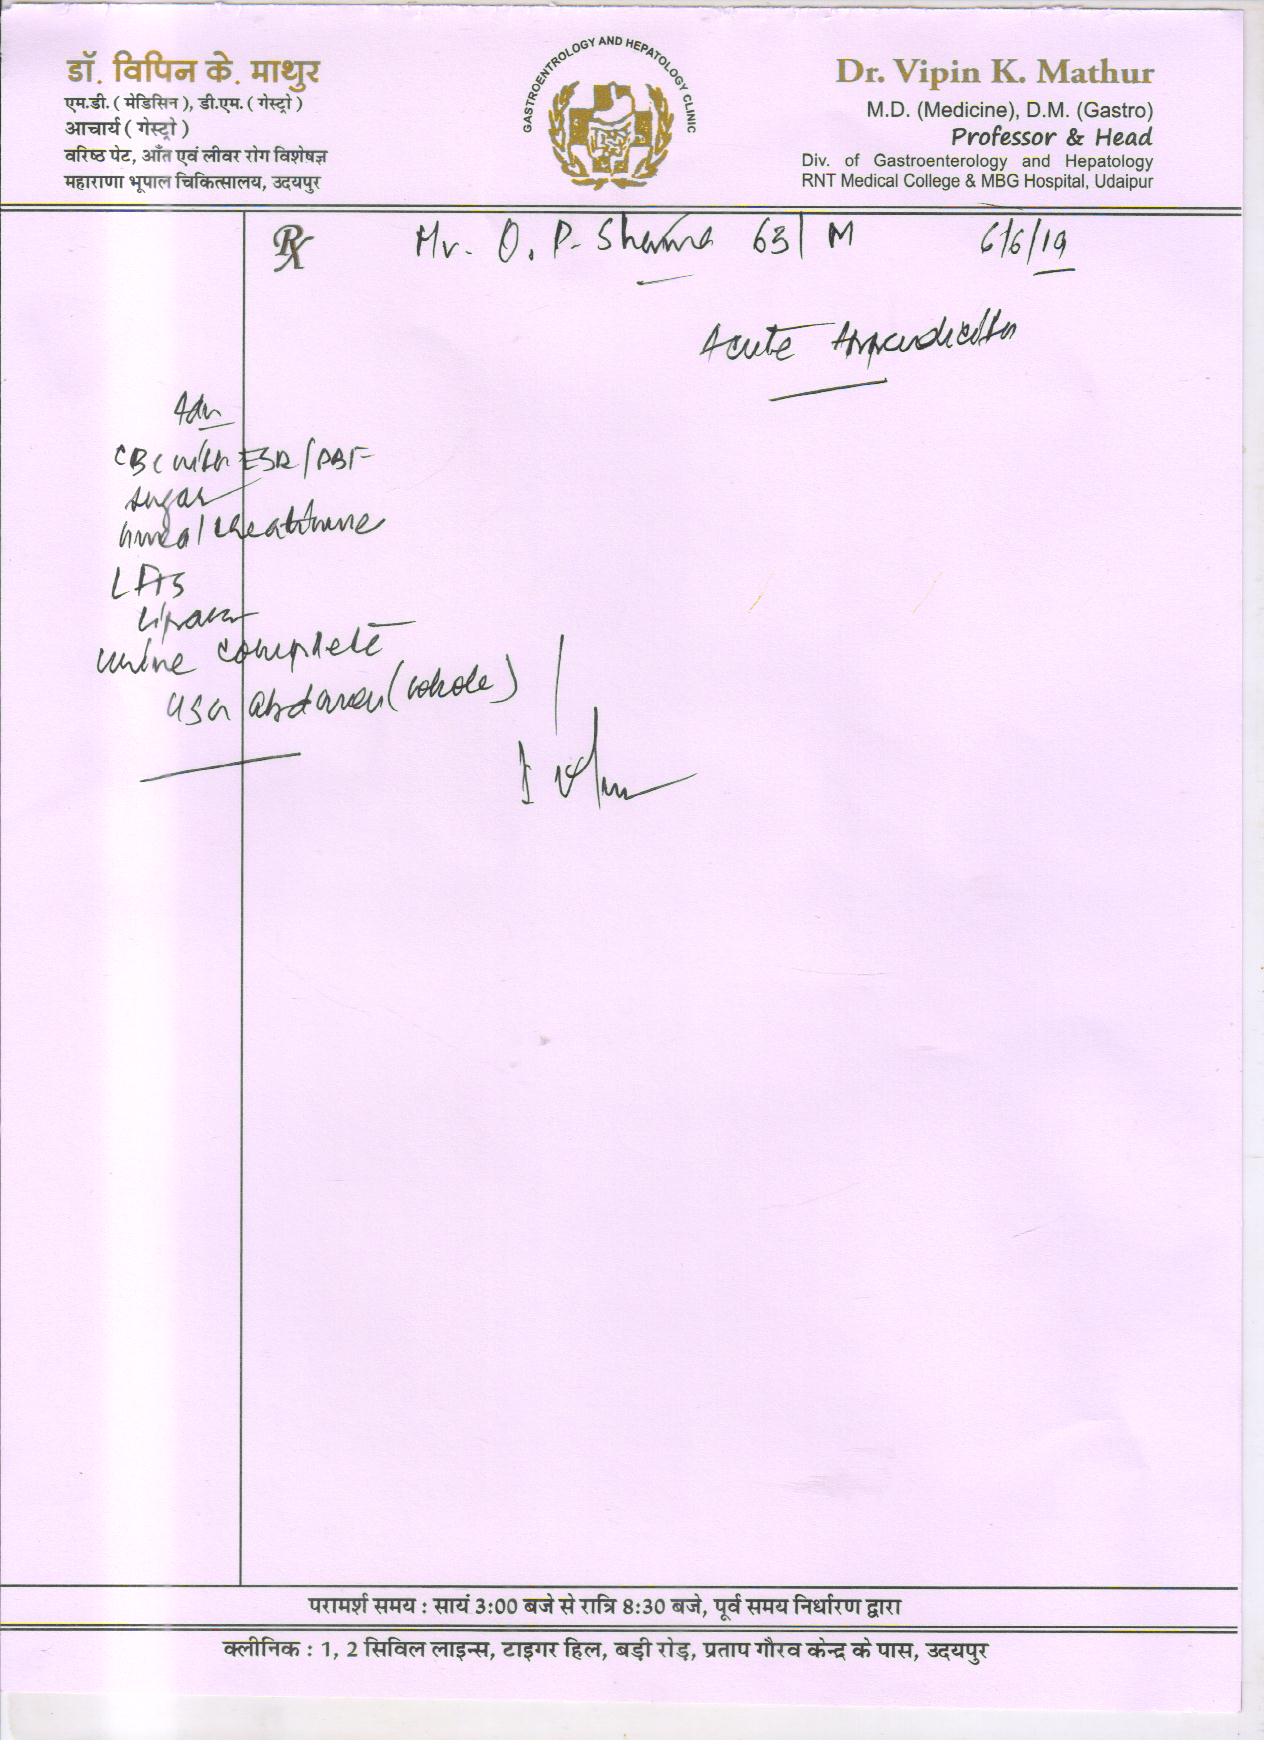 डॉ. विपिन के. माथुर
एम.डी. ( मेडिसिन ), डी.एम. ( गेस्ट्रो )
आचार्य ( गेस्ट्रो )
वरिष्ठ पेट, आँत एवं लीवर रोग विशेषज्ञ
महाराणा भूपाल चिकित्सालय, उदयपुर
GASTROENTROLOGY AND HEPATOLOGY CLINIC
Dr. Vipin K. Mathur
M.D. (Medicine), D.M. (Gastro)
Professor & Head
Div. of Gastroenterology and Hepatology
RNT Medical College & MBG Hospital, Udaipur
Rx
Mr. O. P. Sharma 63/M 6/6/19
Acute Appendicitis
Adv
CBC with ESR/PBF
sugar
urea/creatinine
LFTs
Lipase
urine complete
USG abdomen (whole)
परामर्श समय : सायं 3:00 बजे से रात्रि 8:30 बजे, पूर्व समय निर्धारण द्वारा
क्लीनिक : 1, 2 सिविल लाइन्स, टाइगर हिल, बड़ी रोड़, प्रताप गौरव केन्द्र के पास, उदयपुर